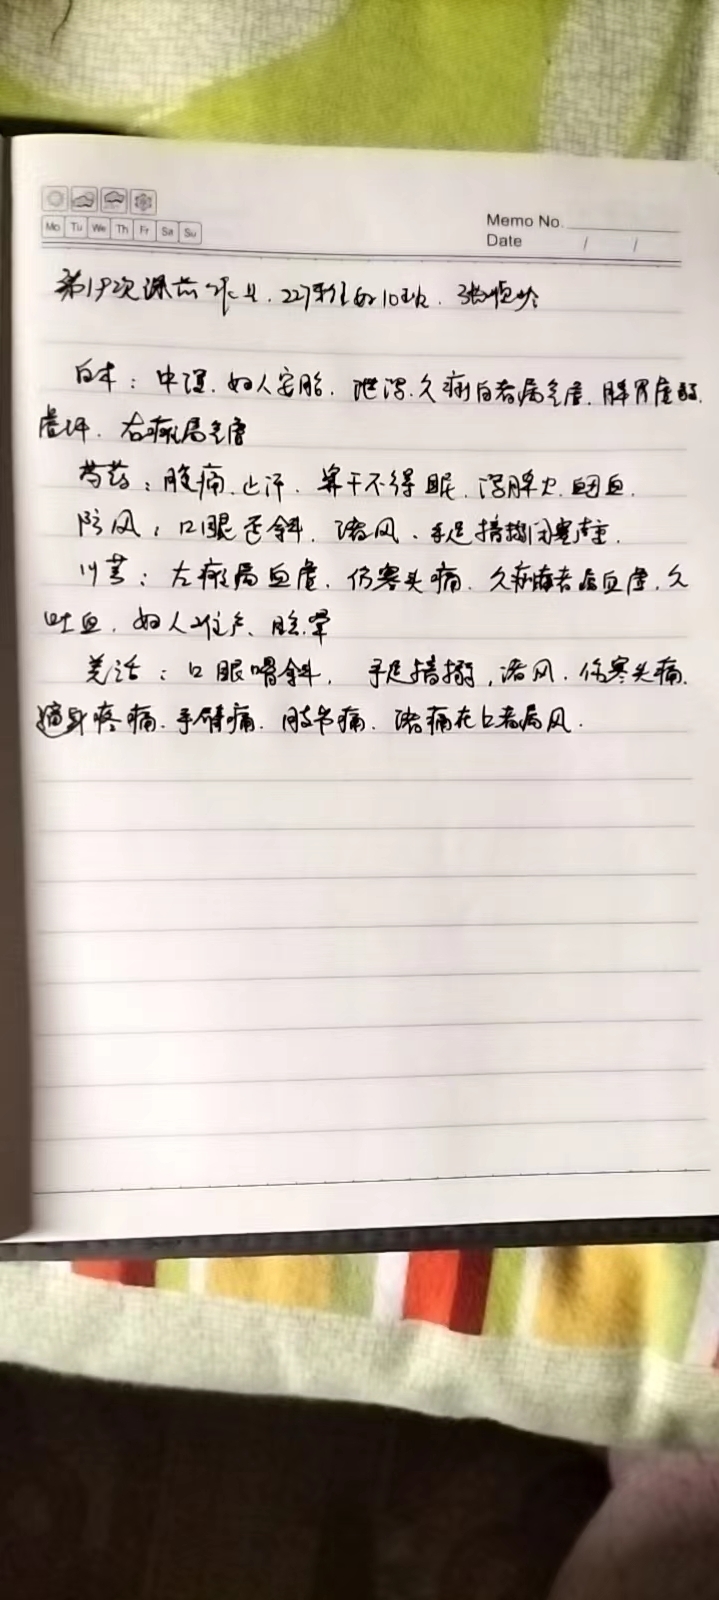 Mo Tu We Th Fr Sa Su
Memo No.
Date / /
第19次课 227 10
白术：中湿.妇人安胎.泄泻.久病右者属气虚.脾胃虚弱.
右瘫属气虚
芍药：腹痛.止汗.不得眠.泻脾火.衄血.
防风：口眼歪斜.诸风.手足搐搦
川芎：左瘫属血虚.伤寒头痛.久病左者属血虚.久
吐血.妇人难产、眩晕
羌活：口眼喎斜，手足搐搦，诸风.伤寒头痛.
遍身疼痛.手臂痛.肢节痛.诸痛在上者属风.